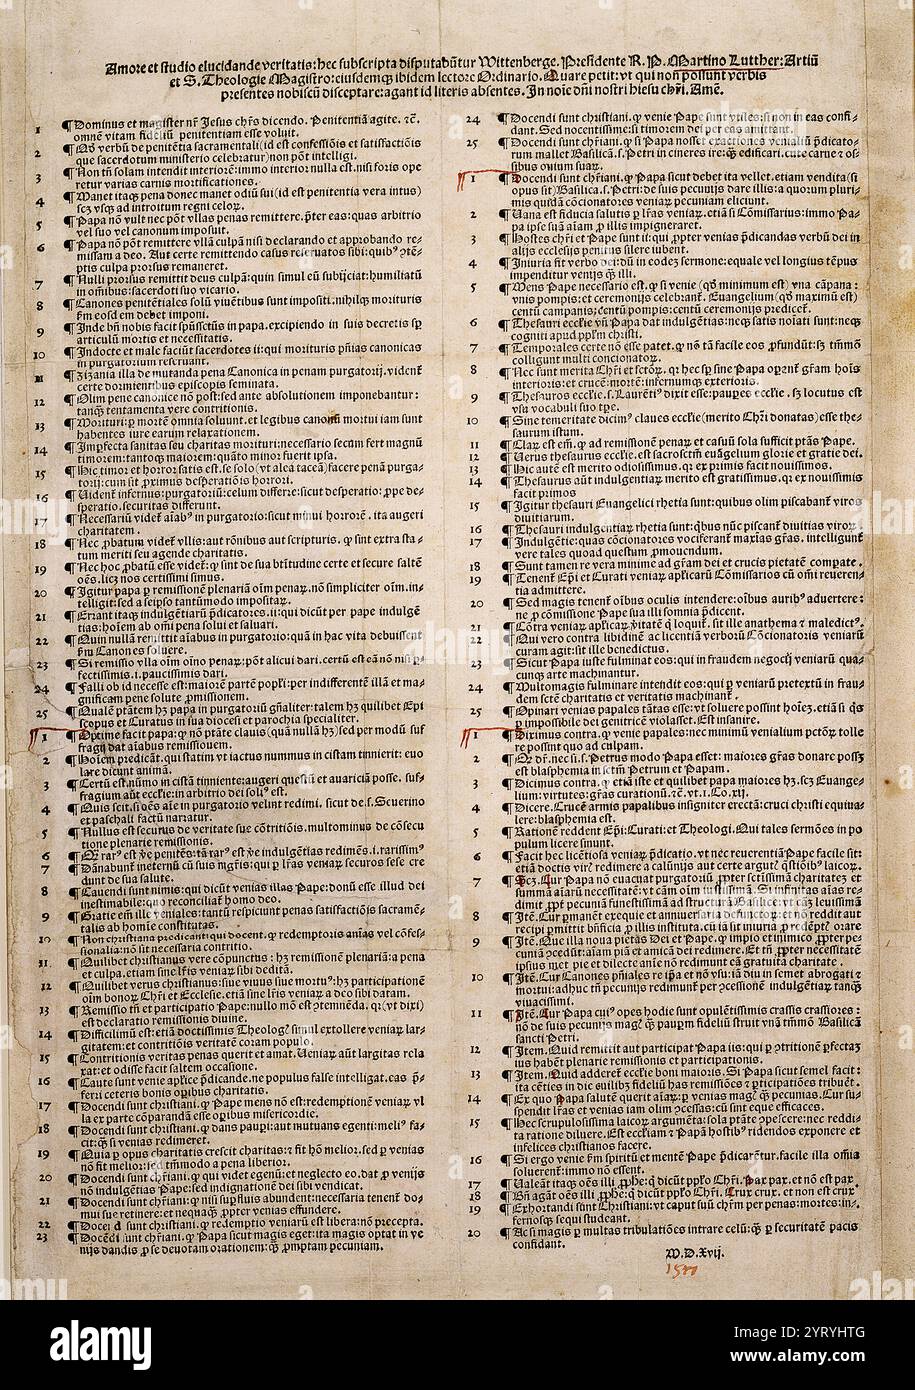 Amore et studio elucidande veritatis: hec subscripta disputabũtur Wittenberge. Presidente R. P. Martino Lutther: Artiũ
et S. Theologie Magistro: eiusdemꝗ ibidem lectore Ordinario. Quare petit: vt qui non possunt verbis
presentes nobiscũ disceptare: agant id literis absentes. In noĩe dñi nostri hiesu chr̃i. Amẽ.
1 ¶ Dominus et magister nr̃ Jesus chr̃s dicendo. Penitentiã agite. ꝛc̃.
omnẽ vitam fideliũ penitentiam esse voluit.
2 ¶ Qđ verbũ de penitẽtia sacramentali (id est confessiõis et satisfactiõis
que sacerdotum ministerio celebratur) non põt intelligi.
3 ¶ Non tñ solam intendit interiorẽ: immo interior nulla est. nisi foris ope
retur varias carnis mortificationes.
4 ¶ Manet itaꝗ pena donec manet odiũ sui (id est penitentia vera intus)
scꝫ vsꝗ ad introitum regni celoꝝ.
5 ¶ Papa nõ vult nec põt vllas penas remittere. p̃ter eas: quas arbitrio
vel suo vel canonum imposuit.
6 ¶ Papa nõ põt remittere vllã culpã nisi declarando et approbando re-
missam a deo. Aut certe remittendo casus reseruatos sibi: quibꝰ ꝯtẽ-
ptis culpa prorsus remaneret.
7 ¶ Nulli prorsus remittit deus culpã: quin simul eũ subijciat: humiliatũ
in oĩnibus: sacerdoti suo vicario.
8 ¶ Canones penitẽtiales solũ viuẽtibus sunt impositi. nihilꝗ morituris
ꝑm eosdem debet imponi.
9 ¶ Inde bñ nobis facit spũssctũs in papa. excipiendo in suis decretis sꝑ
articulũ mortis et necessitatis.
10 ¶ Indocte et male faciũt sacerdotes ii: qui morituris pñias canonicas
in purgatorium reseruant.
11 ¶ Zizania illa de mutanda pena Canonica in penam purgatorij. vident̃
certe dormientibus episcopis seminata.
12 ¶ Olim pene canonice nõ post: sed ante absolutionem imponebantur:
tanꝗ̃ tentamenta vere contritionis.
13 ¶ Morituri: ꝑ mortẽ omnia soluunt. et legibus canonũ mortui iam sunt
habentes iure earum relaxationem.
14 ¶ Imperfecta sanitas seu charitas morituri: necessario secum fert magnũ
timorem: tantoꝗ maiorem: quãto minor fuerit ipsa.
15 ¶ Hic timor et horror satis est. se solo (vt alia taceã) facere penã purga-
torij: cum sit ꝓximus desperatiõis horrori.
16 ¶ Vident̃ infernus: purgatoriũ: celum differre: sicut desperatio: ꝓpe de-
speratio. securitas differunt.
17 ¶ Necessariũ videt̃ aĩabꝰ in purgatorio: sicut minui horrorẽ. ita augeri
charitatem.
18 ¶ Nec ꝓbatum videt̃ vllis: aut rõnibus aut scripturis. ꝙ sint extra sta-
tum meriti seu agende charitatis.
19 ¶ Nec hoc ꝓbatũ esse videt̃: ꝙ sint de sua bt̃itudine certe et secure saltẽ
oẽs. licꝫ nos certissimi simus.
20 ¶ Igitur papa ꝑ remissionẽ plenariã oĩm penaꝝ. nõ simpliciter oĩm. in-
telligit: sed a seipso tantũmodo impositaꝝ.
21 ¶ Errant itaꝗ indulgẽtiarũ p̃dicatores ii: qui dicũt per pape indulgẽ
tias: hoĩem ab omni pena solui et saluari.
22 ¶ Quin nullã remittit aĩabus in purgatorio: quã in hac vita debuissent
ꝑm Canones soluere.
23 ¶ Si remissio vlla oĩm oĩno penaꝝ: põt alicui dari. certũ est eã nõ nisi ꝑ-
fectissimis. i. paucissimis dari.
24 ¶ Falli ob id necesse est: maiorẽ partẽ popli: per indifferentẽ illã et ma-
gnificam pene solute ꝓmissionem.
25 ¶ Qualẽ ptãtem hꝫ papa in purgatoriũ gñaliter: talem hꝫ quilibet Epi
scopus et Curatus in sua diocesi et parochia specialiter.
1 ¶ Optime facit papa: ꝙ nõ ptãte clauis (quã nullã hꝫ) sed per modũ suf
fragij dat aĩabus remissionem.
2 ¶ Hoĩem predicãt. qui statim vt iactus nummus in cistam tinnierit: euo
lare dicunt animã.
3 ¶ Certũ est. nũmo in cistã tinniente: augeri questũ et auariciã posse. suf-
fragium aũt eccl̃ie: in arbitrio dei soliꝰ est.
4 ¶ Quis scit. si oẽs aĩe in purgatorio velint redimi. sicut de. s. Seuerino
et paschali factũ narratur.
5 ¶ Nullus est securus de veritate sue cõtritiõis. multominus de cõsecu
tione plenarie remissionis.
6 ¶ Qr̃ rarꝰ est ṽe penitẽs: tã rarꝰ est ṽe indulgẽtias redimẽs. i. rarissimꝰ
7 ¶ Dãnabunt̃ ineternũ cũ suis mgr̃is: qui ꝑ lr̃as veniaꝝ securos sese cre
dunt de sua salute.
8 ¶ Cauendi sunt nimis: qui dicũt venias illas Pape: donũ esse illud dei
inestimabile: quo reconciliat̃ homo deo.
9 ¶ Gratie em̃ ille veniales: tantũ respiciunt penas satisfactiõis sacramẽ-
talis ab homĩe constitutas.
10 ¶ Non christiana predicant: qui docent. ꝙ redemptoris aĩas vel cõfes-
sionalia: nõ sit necessaria contritio.
11 ¶ Quilibet christianus vere cõpunctus: hꝫ remissionẽ plenariã: a pena
et culpa. etiam sine lr̃is veniaꝝ sibi debitã.
12 ¶ Quilibet verus christianus: siue viuus siue mortuꝰ: hꝫ participationẽ
oĩm bonoꝝ Chr̃i et Ecclesie. etiã sine lr̃is veniaꝝ a deo sibi datam.
13 ¶ Remissio tñ et participatio Pape: nullo mõ est ꝯtemnẽda. qꝛ (vt dixi)
est declaratio remissionis diuine.
14 ¶ Difficilimũ est: etiã doctissimis Theologꝭ simul extollere veniaꝝ lar-
gitatem: et contritiõis veritatẽ coram populo.
15 ¶ Contritionis veritas penas querit et amat. Veniaꝝ aũt largitas rela
xat: et odisse facit saltem occasione.
16 ¶ Caute sunt venie aplice p̃dicande. ne populus false intelligat. eas p̃-
ferri ceteris bonis opibus charitatis.
17 ¶ Docendi sunt christiani. ꝙ Pape mens nõ est: redemptionẽ veniaꝝ vl
la ex parte cõparandã esse opibus misericordie.
18 ¶ Docendi sunt christiani. ꝙ dans pauꝑi: aut mutuans egenti: meliꝰ fa-
cit: ꝗ̃ si venias redimeret.
19 ¶ Quia ꝑ opus charitatis crescit charitas: ⁊ fit hõ melior. sed ꝑ venias
nõ fit melior: sꝫ tm̃modo a pena liberior.
20 ¶ Docendi sunt chr̃iani. ꝙ qui videt egenũ: et neglecto eo. dat ꝓ venijs
nõ indulgẽtias Pape: sed indignationẽ dei sibi vendicat.
21 ¶ Docendi sunt chr̃iani. ꝙ nisi supfluis abundent: necessaria tenent̃ do-
mui sue retinere: et nequaꝗ̃ ꝓpter venias effundere.
22 ¶ Docẽdi sunt christiani. ꝙ redemptio veniarũ est libera: nõ precepta.
23 ¶ Docẽdi sunt chr̃iani. ꝙ Papa sicut magis eget: ita magis optat in ve
nijs dandis ꝓ se deuotam orationem: ꝗ̃ ꝓmptam pecuniam.
24 ¶ Docendi sunt christiani. ꝙ venie Pape sunt vtiles: si non in eas confi-
dant. Sed nocentissime: si timorem dei per eas amittant.
25 ¶ Docendi sunt chr̃iani. ꝙ si Papa nosset exactiones venialiũ p̃dicato-
rum mallet Basilicã. s. Petri in cineres ire: ꝗ̃ edificari. cute carne ⁊ os-
sibus ouium suaꝝ.
1 ¶ Docendi sunt chr̃iani. ꝙ Papa sicut debet ita vellet. etiam vendita (si
opus sit) Basilica. s. Petri: de suis pecunijs dare illis: a quorum pluri-
mis quidã cõcionatores veniaꝝ pecuniam eliciunt.
2 ¶ Vana est fiducia salutis ꝑ lr̃as veniaꝝ. etiã si Cõmissarius: immo Pa-
pa ipse suã aĩam ꝓ illis impigneraret.
3 ¶ Hostes chr̃i et Pape sunt ii: qui ꝓpter venias p̃dicandas verbũ dei in
alijs ecclesijs penitus silere iubent.
4 ¶ Iniuria fit verbo dei: dũ in eodẽ sermone: equale vel longius tẽpus
impenditur venijs ꝗ̃ illi.
5 ¶ Mens Pape necessario est. ꝙ si venie (qđ minimum est) vna cãpana:
vnis pompis: et ceremonijs celebrant̃. Euangelium (qđ maximũ est)
centũ campanis: centũ pompis: centũ ceremonijs predicet̃.
6 ¶ Thesauri eccl̃ie vñ Papa dat indulgẽtias: neꝗ satis noĩati sunt: neꝗ
cogniti apud pplm̃ chr̃i.
7 ¶ Temporales certe nõ esse patet. ꝙ nõ tã facile eos ꝓfundũt: sꝫ tm̃mõ
colligunt multi concionatorꝝ.
8 ¶ Nec sunt merita Chr̃i et sctõꝝ. qꝛ hec sꝑ sine Papa oꝑant̃ gr̃am hoĩs
interioris: et crucẽ: mortẽ: infernumꝗ exterioris.
9 ¶ Thesauros eccl̃ie. s. Laurẽtiꝰ dixit esse: pauꝑes eccl̃ie. sꝫ locutus est
vsu vocabuli suo tꝑe.
10 ¶ Sine temeritate dicimꝰ claues eccl̃ie (merito Chr̃i donatas) esse the-
saurum istum.
11 ¶ Claꝝ est em̃. ꝙ ad remissionẽ penaꝝ et casuũ sola sufficit ptãs Pape.
12 ¶ Verus thesaurus eccl̃ie. est sacrosctm̃ euãgelium glorie et gratie dei.
13 ¶ Hic aũt est merito odiosissimus. qꝛ ex primis facit nouissimos.
14 ¶ Thesaurus aũt indulgentiaꝝ merito est gratissimus. qꝛ ex nouissimis
facit primos
15 ¶ Igitur thesauri Euangelici rhetia sunt: quibus olim piscabant̃ viros
diuitiarum.
16 ¶ Thesauri indulgentiaꝝ rhetia sunt: qb̃us nũc piscant̃ diuitias viroꝝ.
17 ¶ Indulgẽtie: quas cõcionatores vociferant̃ maxĩas gr̃as. intelligunt̃
vere tales quoad questum ꝓmouendum.
18 ¶ Sunt tamen re vera minime ad gr̃am dei et crucis pietatẽ compate.
19 ¶ Tenent̃ Ep̃i et Curati veniaꝝ apl̃icarũ Cõmissarios cũ oĩm reueren-
tia admittere.
20 ¶ Sed magis tenent̃ oĩbus oculis intendere: oĩbus auribꝰ aduertere:
ne ꝓ cõmissione Pape sua illi somnia p̃dicent.
21 ¶ Cõtra veniaꝝ aplicaꝝ ṽitatẽ q̃ loquit̃. sit ille anathema ⁊ maledictꝰ.
22 ¶ Qui vero contra libidinẽ ac licentiã verborũ Cõcionatoris veniarũ
curam agit: sit ille benedictus.
23 ¶ Sicut Papa iuste fulminat eos: qui in fraudem negocij veniarũ qua-
cunꝗ arte machinantur.
24 ¶ Multomagis fulminare intendit eos: qui ꝑ veniaꝝ pretextũ in frau-
dem sctẽ charitatis et veritatis machinant̃.
25 ¶ Opinari venias papales tãtas esse: vt soluere possint hoĩeꝫ. etiã si ꝗs
ꝑ impossibile dei genitricẽ violasset. Est insanire.
1 ¶ Diximus contra. ꝙ venie papales: nec minimũ venialium pctõꝝ tolle
re possint quo ad culpam.
2 ¶ Qꝫ dr̃. nec si. s. Petrus modo Papa esset: maiores gr̃as donare possꝫ
est blasphemia in sctm̃ Petrum et Papam.
3 ¶ Dicimus contra. ꝙ etiã iste et quilibet papa maiores hꝫ. scꝫ Euange-
lium: virtutes: gr̃as curationũ. ꝛc̃. vt. 1. Co. xij.
4 ¶ Dicere. Crucẽ armis papalibus insigniter erectã: cruci christi equiua-
lere: blasphemia est.
5 ¶ Rationẽ reddent Ep̃i: Curati: et Theologi. Qui tales sermões in po
pulum licere sinunt.
6 ¶ Facit hec licẽtiosa veniaꝝ p̃dicatio. vt nec reuerentiã Pape facile sit:
etiã doctis viris redimere a calũnijs aut certe argutꝭ q̃stiõibꝰ laicoꝝ.
7 ¶ Scꝫ. Cur Papa nõ euacuat purgatoriũ ꝓpter sctissimã charitateꝫ et
summã aĩarũ necessitatẽ: vt cãm oĩm iustissimã. Si infinitas aĩas re-
dimit ꝓpt̃ pecuniã funestissimã ad structurã Basilice: vt cãm leuissimã
8 ¶ Itẽ. Cur ꝑmanẽt exequie et anniuersaria defunctoꝝ: et nõ reddit aut
recipi permittit bñficia ꝓ illis instituta. cũ iã sit iniuria ꝓ redẽptꝭ orare
9 ¶ Itẽ. Que illa noua pietas Dei et Pape. ꝙ impio et inimico ꝓpter pe-
cuniã ꝯcedũt: aĩam piã et amicã dei redimere. Et tñ ꝓpter necessitatẽ
ipsius met pie et dilecte aĩe nõ redimunt eã gratuita charitate.
10 ¶ Itẽ. Cur Canones pñiales re ip̃a et nõ vsu: iã diu in semet abrogati ⁊
mortui: adhuc tñ pecunijs redimunt̃ per ꝯcessionẽ indulgẽtiaꝝ tanꝗ̃
viuacissimi.
11 ¶ Itẽ. Cur Papa cuiꝰ opes hodie sunt opulẽtissimis crassis crassiores:
nõ de suis pecunijs magꝭ ꝗ̃ pauꝑm fideliũ struit vnã tm̃mõ Basilicã
sancti Petri.
12 ¶ Item. Quid remittit aut participat Papa iis: qui ꝑ ꝯtritionẽ ꝑfectaꝫ
ius habẽt plenarie remissionis et participationis.
13 ¶ Item. Quid adderet̃ eccl̃ie boni maioris. Si Papa sicut semel facit:
ita cẽties in die cuilibꝫ fideliũ has remissiões ⁊ ꝑticipatiões tribuet̃.
14 ¶ Ex quo Papa salutẽ querit aĩaꝝ: ꝑ venias magꝭ ꝗ̃ pecunias. Cur su-
spendit lr̃as et venias iam olim ꝯcessas: cũ sint eque efficaces.
15 ¶ Hec scrupulosissima laicoꝝ argumẽta: sola ptãte ꝯpescere: nec reddi-
ta ratione diluere. Est eccl̃iam ⁊ Papã hostibꝰ ridendos exponere et
infelices christianos facere.
16 ¶ Si ergo venie ꝑm spiritũ et mentẽ Pape p̃dicarẽtur. facile illa oĩmia
soluerent̃: immo nõ essent.
17 ¶ Valeãt itaꝗ oẽs illi ꝓph̃e: q̃ dicũt pplo Chr̃i. Pax pax. et nõ est pax
18 ¶ Bñ agãt oẽs illi ꝓph̃e: q̃ dicũt pplo Chr̃i. Crux crux. et non est crux
19 ¶ Exhortandi sunt Christiani: vt caput suũ chr̃m per penas: mortes: in-
fernosꝗ sequi studeant.
20 ¶ Ac si magis ꝑ multas tribulatiões intrare celũ: ꝗ̃ ꝑ securitatẽ pacis
confidant.
M. D. Xvij.
1517
alamy
Image ID: 2YRYHTG
www.alamy.com